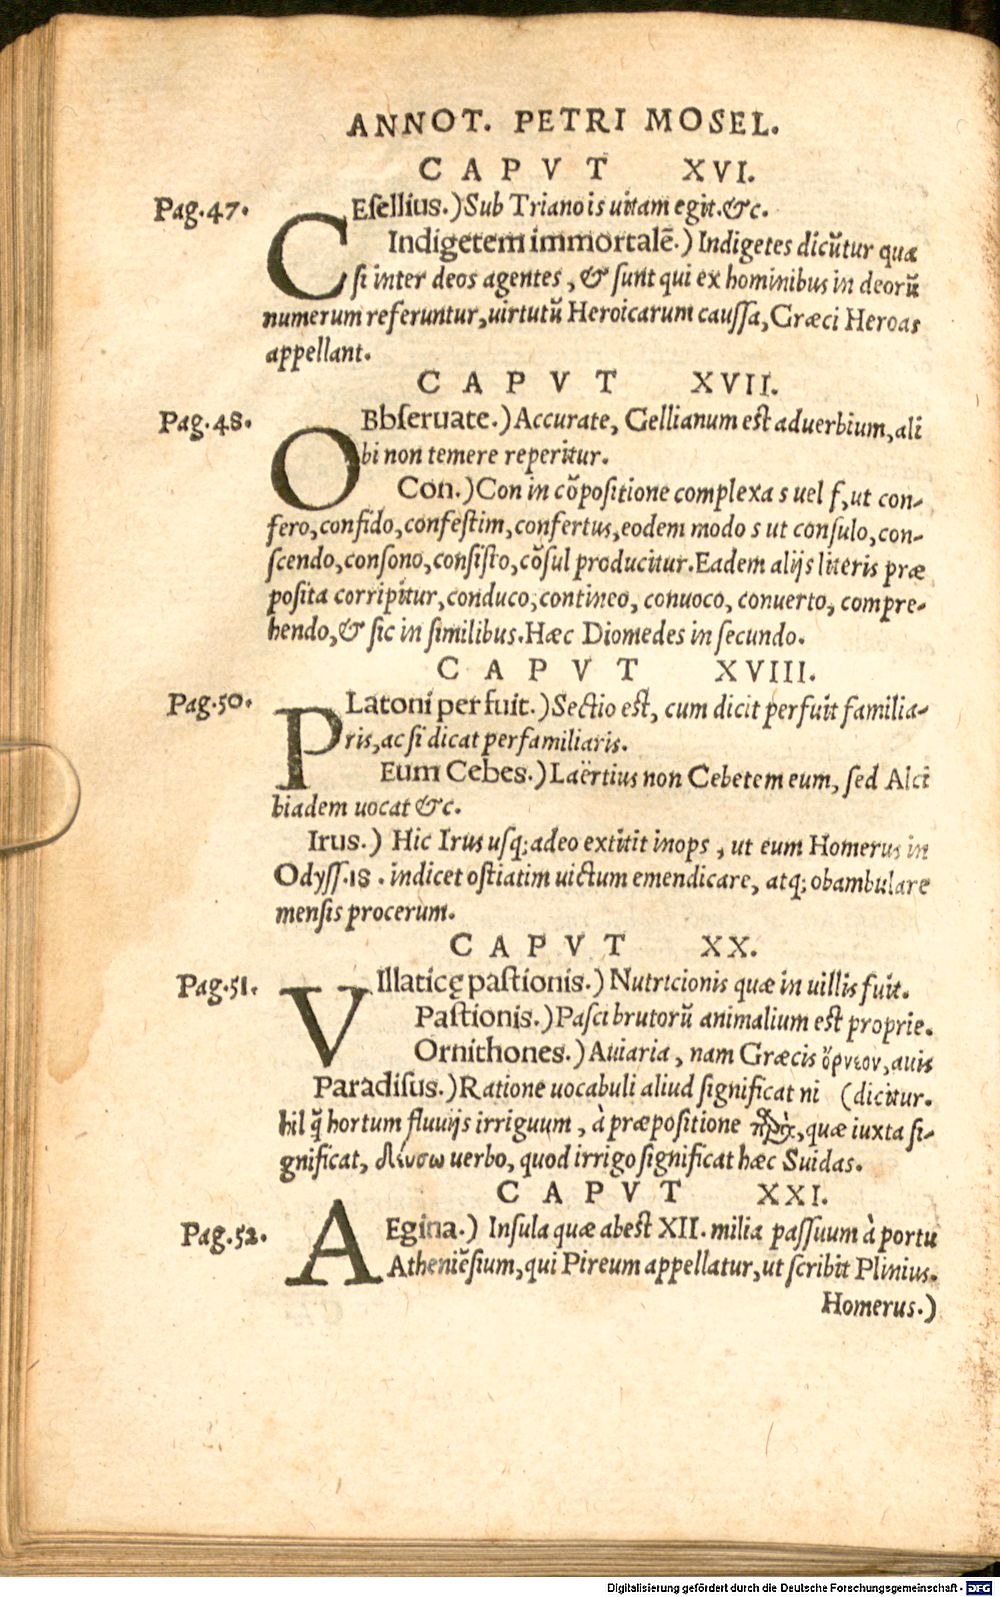 ANNOT. PETRI MOSEL.
CAPVT XVI.
Pag.47. CEſellius.) Sub Triano is uitam egit.&c.
Indigetem immortalē.) Indigetes dicūtur quæ
ſi inter deos agentes, & ſunt qui ex hominibus in deorū
numerum referuntur, uirtutū Heroicarum cauſſa, Græci Heroas
appellant.
CAPVT XVII.
Pag.48. OBbſeruate.) Accurate, Gellianum eſt aduerbium, ali
bi non temere reperitur.
Con.) Con in cōpoſitione complexa s uel f, ut con-
fero, confido, confeſtim, confertus, eodem modo s ut conſulo, con-
ſcendo, conſono, conſiſto, cōſul producitur. Eadem alijs literis præ
poſita corripitur, conduco, contineo, conuoco, conuerto, compre-
hendo, & ſic in ſimilibus. Hæc Diomedes in ſecundo.
CAPVT XVIII.
Pag.50. PLatoni per fuit.) Sectio eſt, cum dicit per fuit familia-
ris, ac ſi dicat perfamiliaris.
Eum Cebes.) Laërtius non Cebetem eum, ſed Alci
biadem uocat &c.
Irus.) Hic Irus uſq; adeo extitit inops, ut eum Homerus in
Odyſſ.18. indicet oſtiatim uictum emendicare, atq; obambulare
menſis procerum.
CAPVT XX.
Pag.51. VIllaticę paſtionis.) Nutricionis quæ in uillis fuit.
Paſtionis.) Paſci brutorū animalium eſt proprie.
Ornithones.) Auiaria, nam Græcis ὄρνεον, auis
Paradiſus.) Ratione uocabuli aliud ſignificat ni (dicitur.
hil q̃ hortum fluuijs irriguum, à præpoſitione παρὰ, quæ iuxta ſi-
gnificat, δεύσω uerbo, quod irrigo ſignificat hæc Suidas.
CAPVT XXI.
Pag.52. AEgina.) Inſula quæ abeſt XII. milia paſſuum à portu
Atheniēſium, qui Pireum appellatur, ut ſcribit Plinius.
Homerus.)
Digitalisierung gefördert durch die Deutsche Forschungsgemeinschaft - DFG